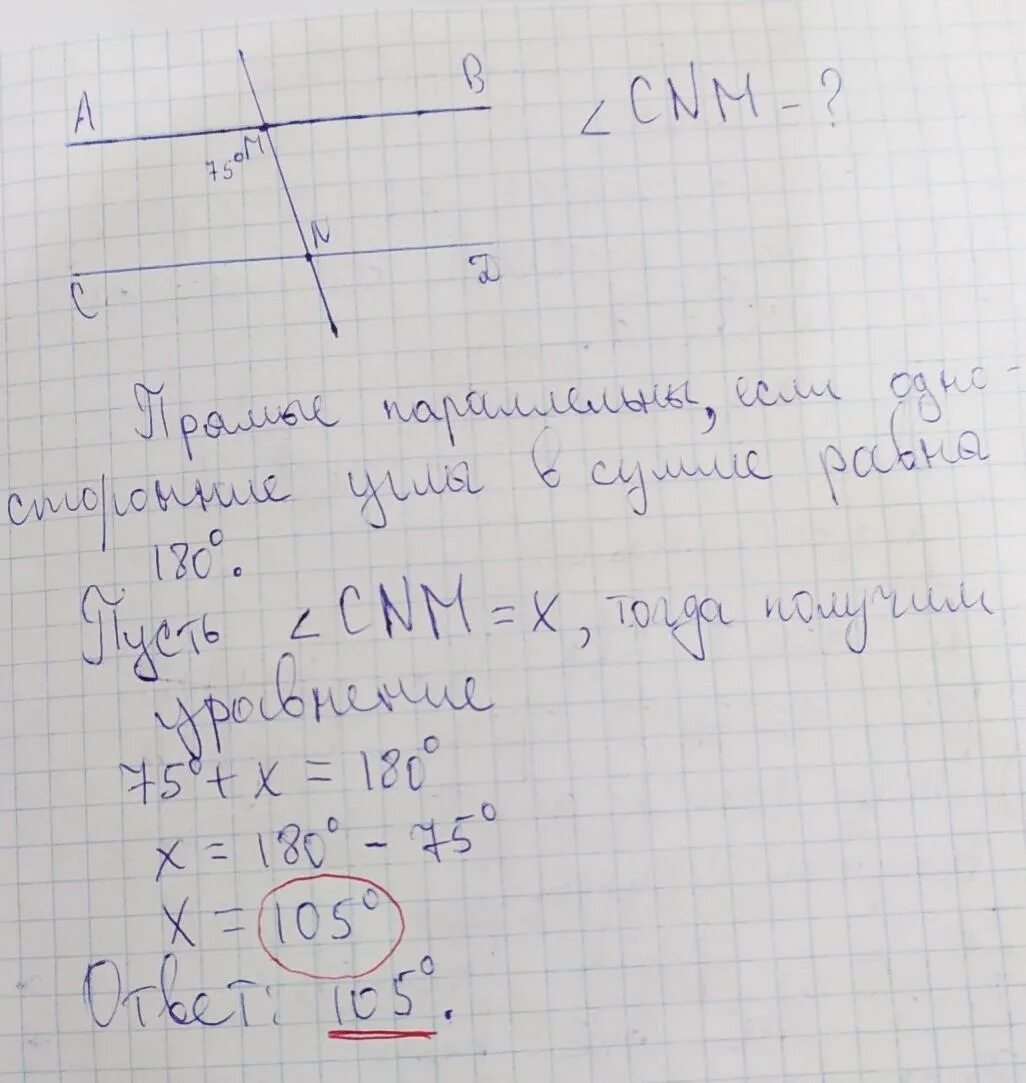 A
B
∠CNM - ?
75° M
N
C
D
Прямые параллельны, если одно-
сторонние углы в сумме равны
180°.
Пусть ∠CNM = x, тогда получим
уравнение
75° + x = 180°
x = 180° - 75°
x = 105°
Ответ: 105°.